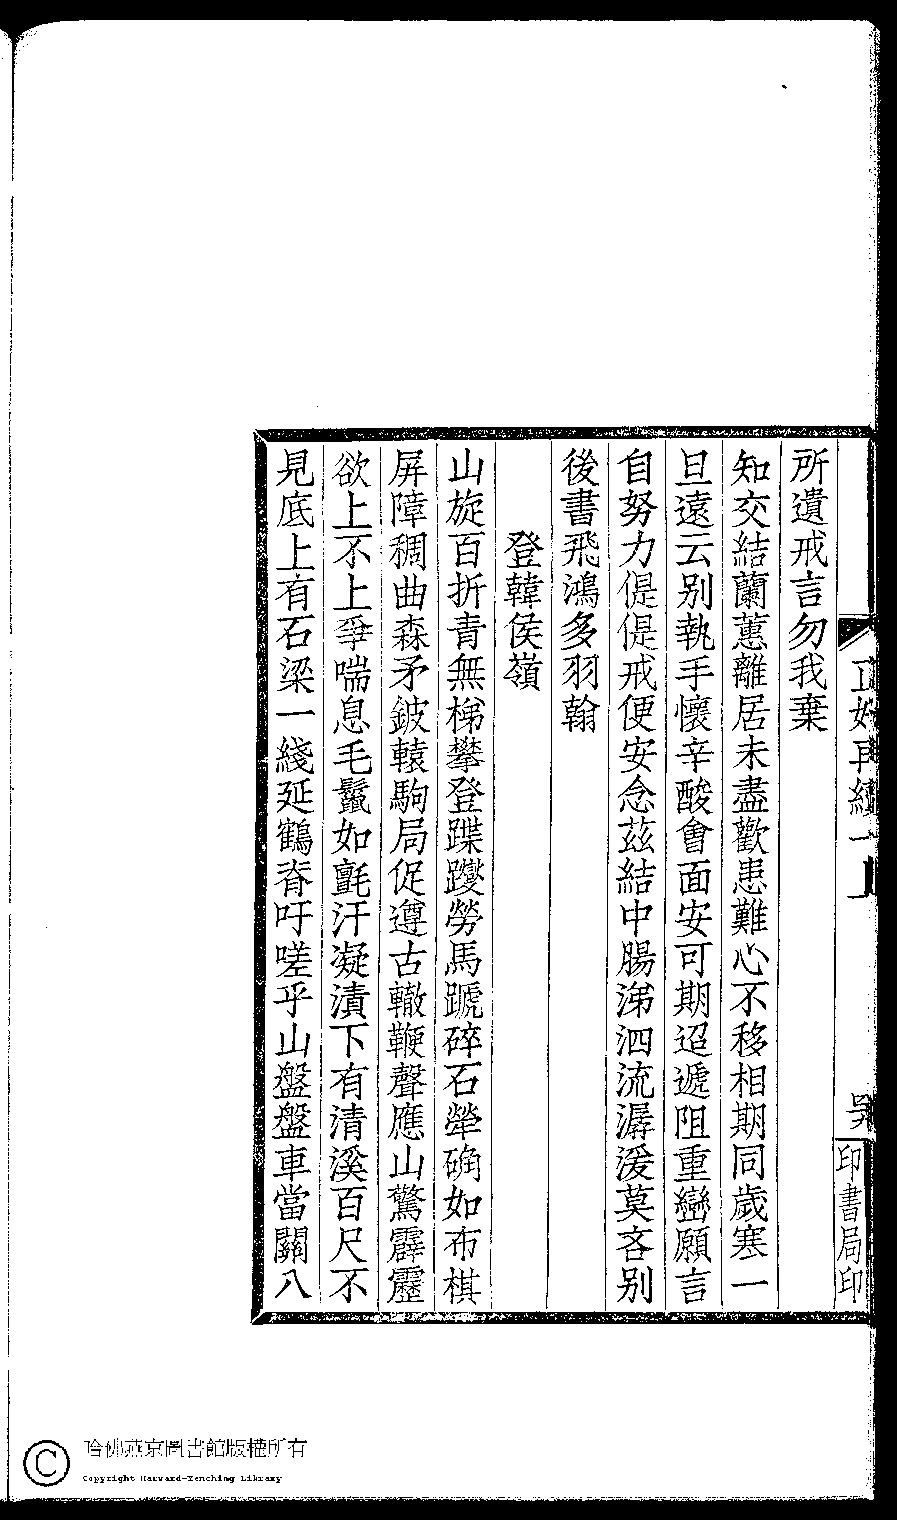 所遺戒言勿我棄
知交結蘭蕙離居未盡歡患難心不移相期同歲寒一
旦遠云別執手懷辛酸會面安可期迢遞阻重巒願言
自努力偍偍戒便安念茲結中腸涕泗流潺湲莫吝別
後書飛鴻多羽翰
登韓侯嶺
山旋百折青無梯攀登蹀躞勞馬蹏碎石犖确如布棋
屏障稠曲森矛鈹轅駒局促遵古轍鞭聲應山驚霹靂
欲上不上爭喘息毛鬣如氈汗凝漬下有清溪百尺不
見底上有石梁一綫延鶴脊吁嗟乎山盤盤車當關八
再續一
印書局印
哈佛燕京圖書館版權所有
Copyright Harvard-Yenching Library